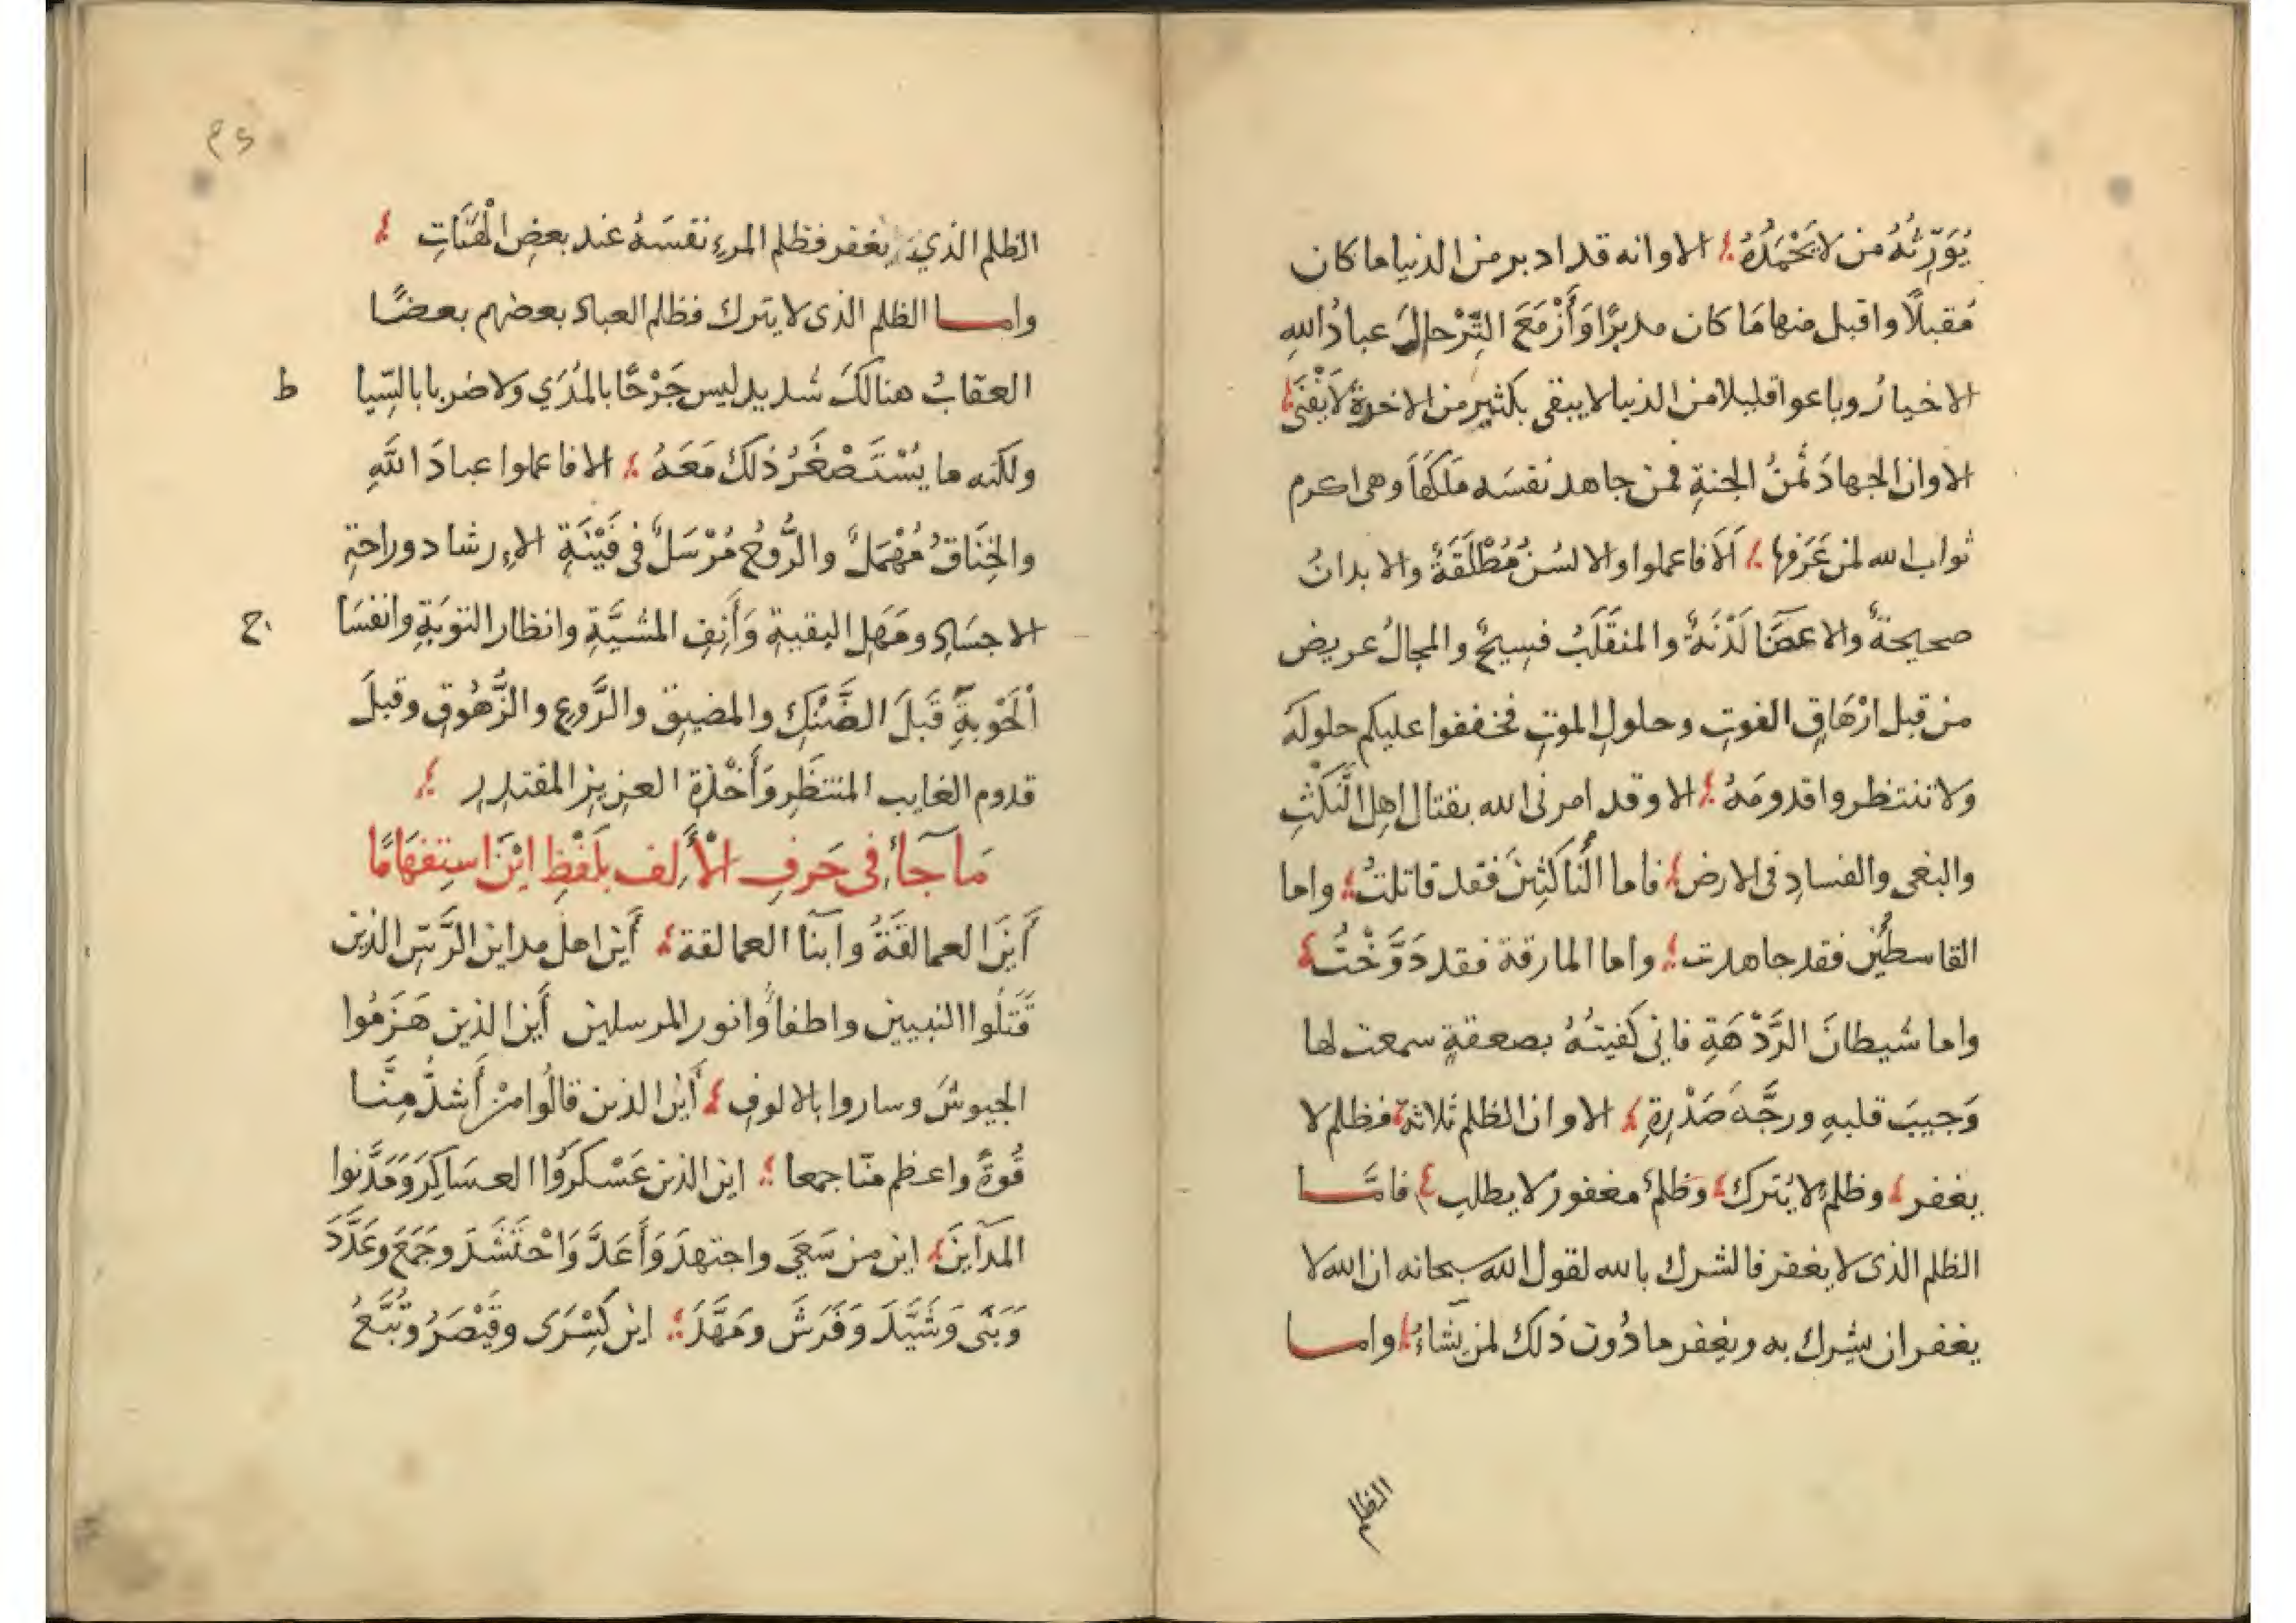 يُوَرِّثُهُ من لا يَحْمَدُهُ ؛ الا وانه قد ادبر من الدنيا ما كان
مُقبلًا واقبل منها مَا كان مدبرًا وَأَزْمَعَ التَّرْحالَ عبادُ اللهِ
الاخيارُ وباعوا قليلا من الدنيا لا يبقى بكثيرٍ من الاخرةِ لَا يَفْنَى ؛
الا وان الجهادَ ثَمنُ الجنةِ فمن جاهد نفسَه مَلَكَهَا وهى اكرم
ثواب الله لمن عَرَفها ؛ أَلَا فاعملوا والالسُنُ مُطْلَقَةٌ والابدانُ
صحيحةٌ والاعضَآ لَدْنَةٌ والمنقَلَبُ فسيحٌ والمجالُ عريض
من قبل ازْهَاقِ الفوتِ وحلولِ الموتِ فخففوا عليكم حلولَهُ
ولا تنتظروا قدومَهُ ؛ الا وقد امرنى الله بقتال اهل النَّكْثِ
والبغى والفسادِ فى الارض ؛ فاما النَّاكثِينَ فقد قاتلتُ ؛ واما
القاسطين فقد جاهدت ؛ واما المارقة فقد دَوَّخْتُ ؛
واما شيطانَ الرَّدْهَةِ فانى كَفيتُهُ بصعقةٍ سمعت لها
وَجيبَ قلبهِ ورجَّهَ صَدْرِهِ ؛ الا وان الظلم ثلاثة ؛ فظلم لا
يغفر ؛ وظلم لا يُترك ؛ وظلمٌ مغفور لا يطلب ؛ فامَّا
الظلم الذى لا يغفر فالشرك بالله لقول الله سبحانه ان الله لا
يغفر ان يشرك به ويغفر ما دُون ذلك لمن يشاءُ ؛ واما
الظلم
الظلم الذي يغفر فظلم المرءِ نفسَهُ عند بعضِ الْهَنَاتِ ؛
واما الظلم الذى لا يترك فظلم العباد بعضهم بعضًا
العقابُ هنالكَ شديد ليس جَرْحًا بالمُدَي ولا ضربا بالسّيا ط
ولكنه ما يُسْتَصْغَرُ ذلك مَعَهُ ؛ الا فاعملوا عبادَ اللهِ
والخِنَاقُ مُهْمَلٌ والرُّوحُ مُرْسَلٌ فى فَيْنَةِ الإرشاد وراحةِ
الاجسَادِ ومَهَلِ البقيةِ وَأَنِفِ المشيَّةِ وانظار التوبَةِ وانفسَا ح
اْلحَوْبةِ قَبلَ الضَّنْكِ والمضيق والرَّوعِ والزُّهُوقِ وقبلَ
قدوم الغايب المنتظَرِ وَأَخْذَةِ العزيز المقتدِرِ ؛
مَا جَآءَ فى حَرفِ الْأَلِف بلَفْظِ ايْنَ استِفهَامًا
أَيْنَ العمالقَةُ وابنآ العمالقة ؛ أَين اهل مداين الرَّسِّ الذين
قَتَلُوا النبيين واطفأوا نور المرسلين أَين الذين هَزَمُوا
الجيوشَ وساروا بالالوفِ ؛ أَين الذين قالُوا مَنْ أَشدُّ مِنَّا
قُوةً واعظم منّا جمعا ؛ اين الذين عَسْكَرُوا العسَاكِرَ وَمَدَّنوا
المدَآينَ ؛ اين من سَعَى واجتهدَ وَأَعَدَّ وَاحْتَشَدَ وجَمَعَ وعَدَّدَ
وَبَنَى وَشَيَّدَ وَفَرَشَ ومَهَّدَ ؛ اين كِسْرَى وقَيْصَرُ وتُبَّعُ